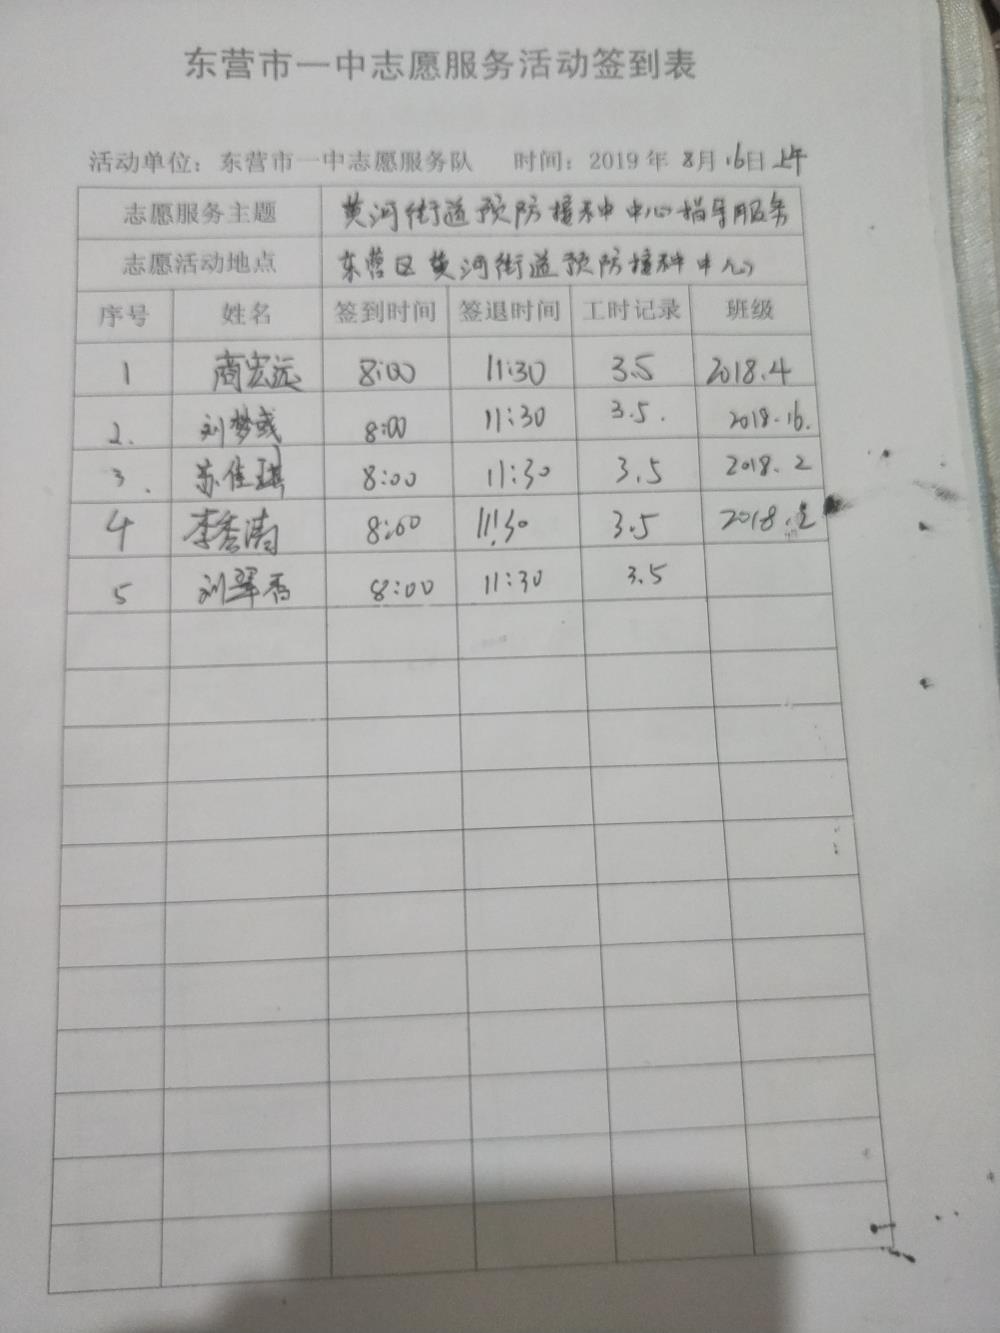 东营市一中志愿服务活动签到表
活动单位：东营市一中志愿服务队 时间：2019年 8月 16日 上午
志愿服务主题 黄河街道预防接种中心指导服务
志愿活动地点 东营区黄河街道预防接种中心
序号 姓名 签到时间 签退时间 工时记录 班级
1 商宏远 8:00 11:30 3.5 2018.4
2. 刘梦彧 8:00 11:30 3.5. 2018.16.
3. 苏佳琪 8:00 11:30 3.5 2018.2
4 李秀清 8:00 11:30 3.5 2018.2
5 刘翠香 8:00 11:30 3.5